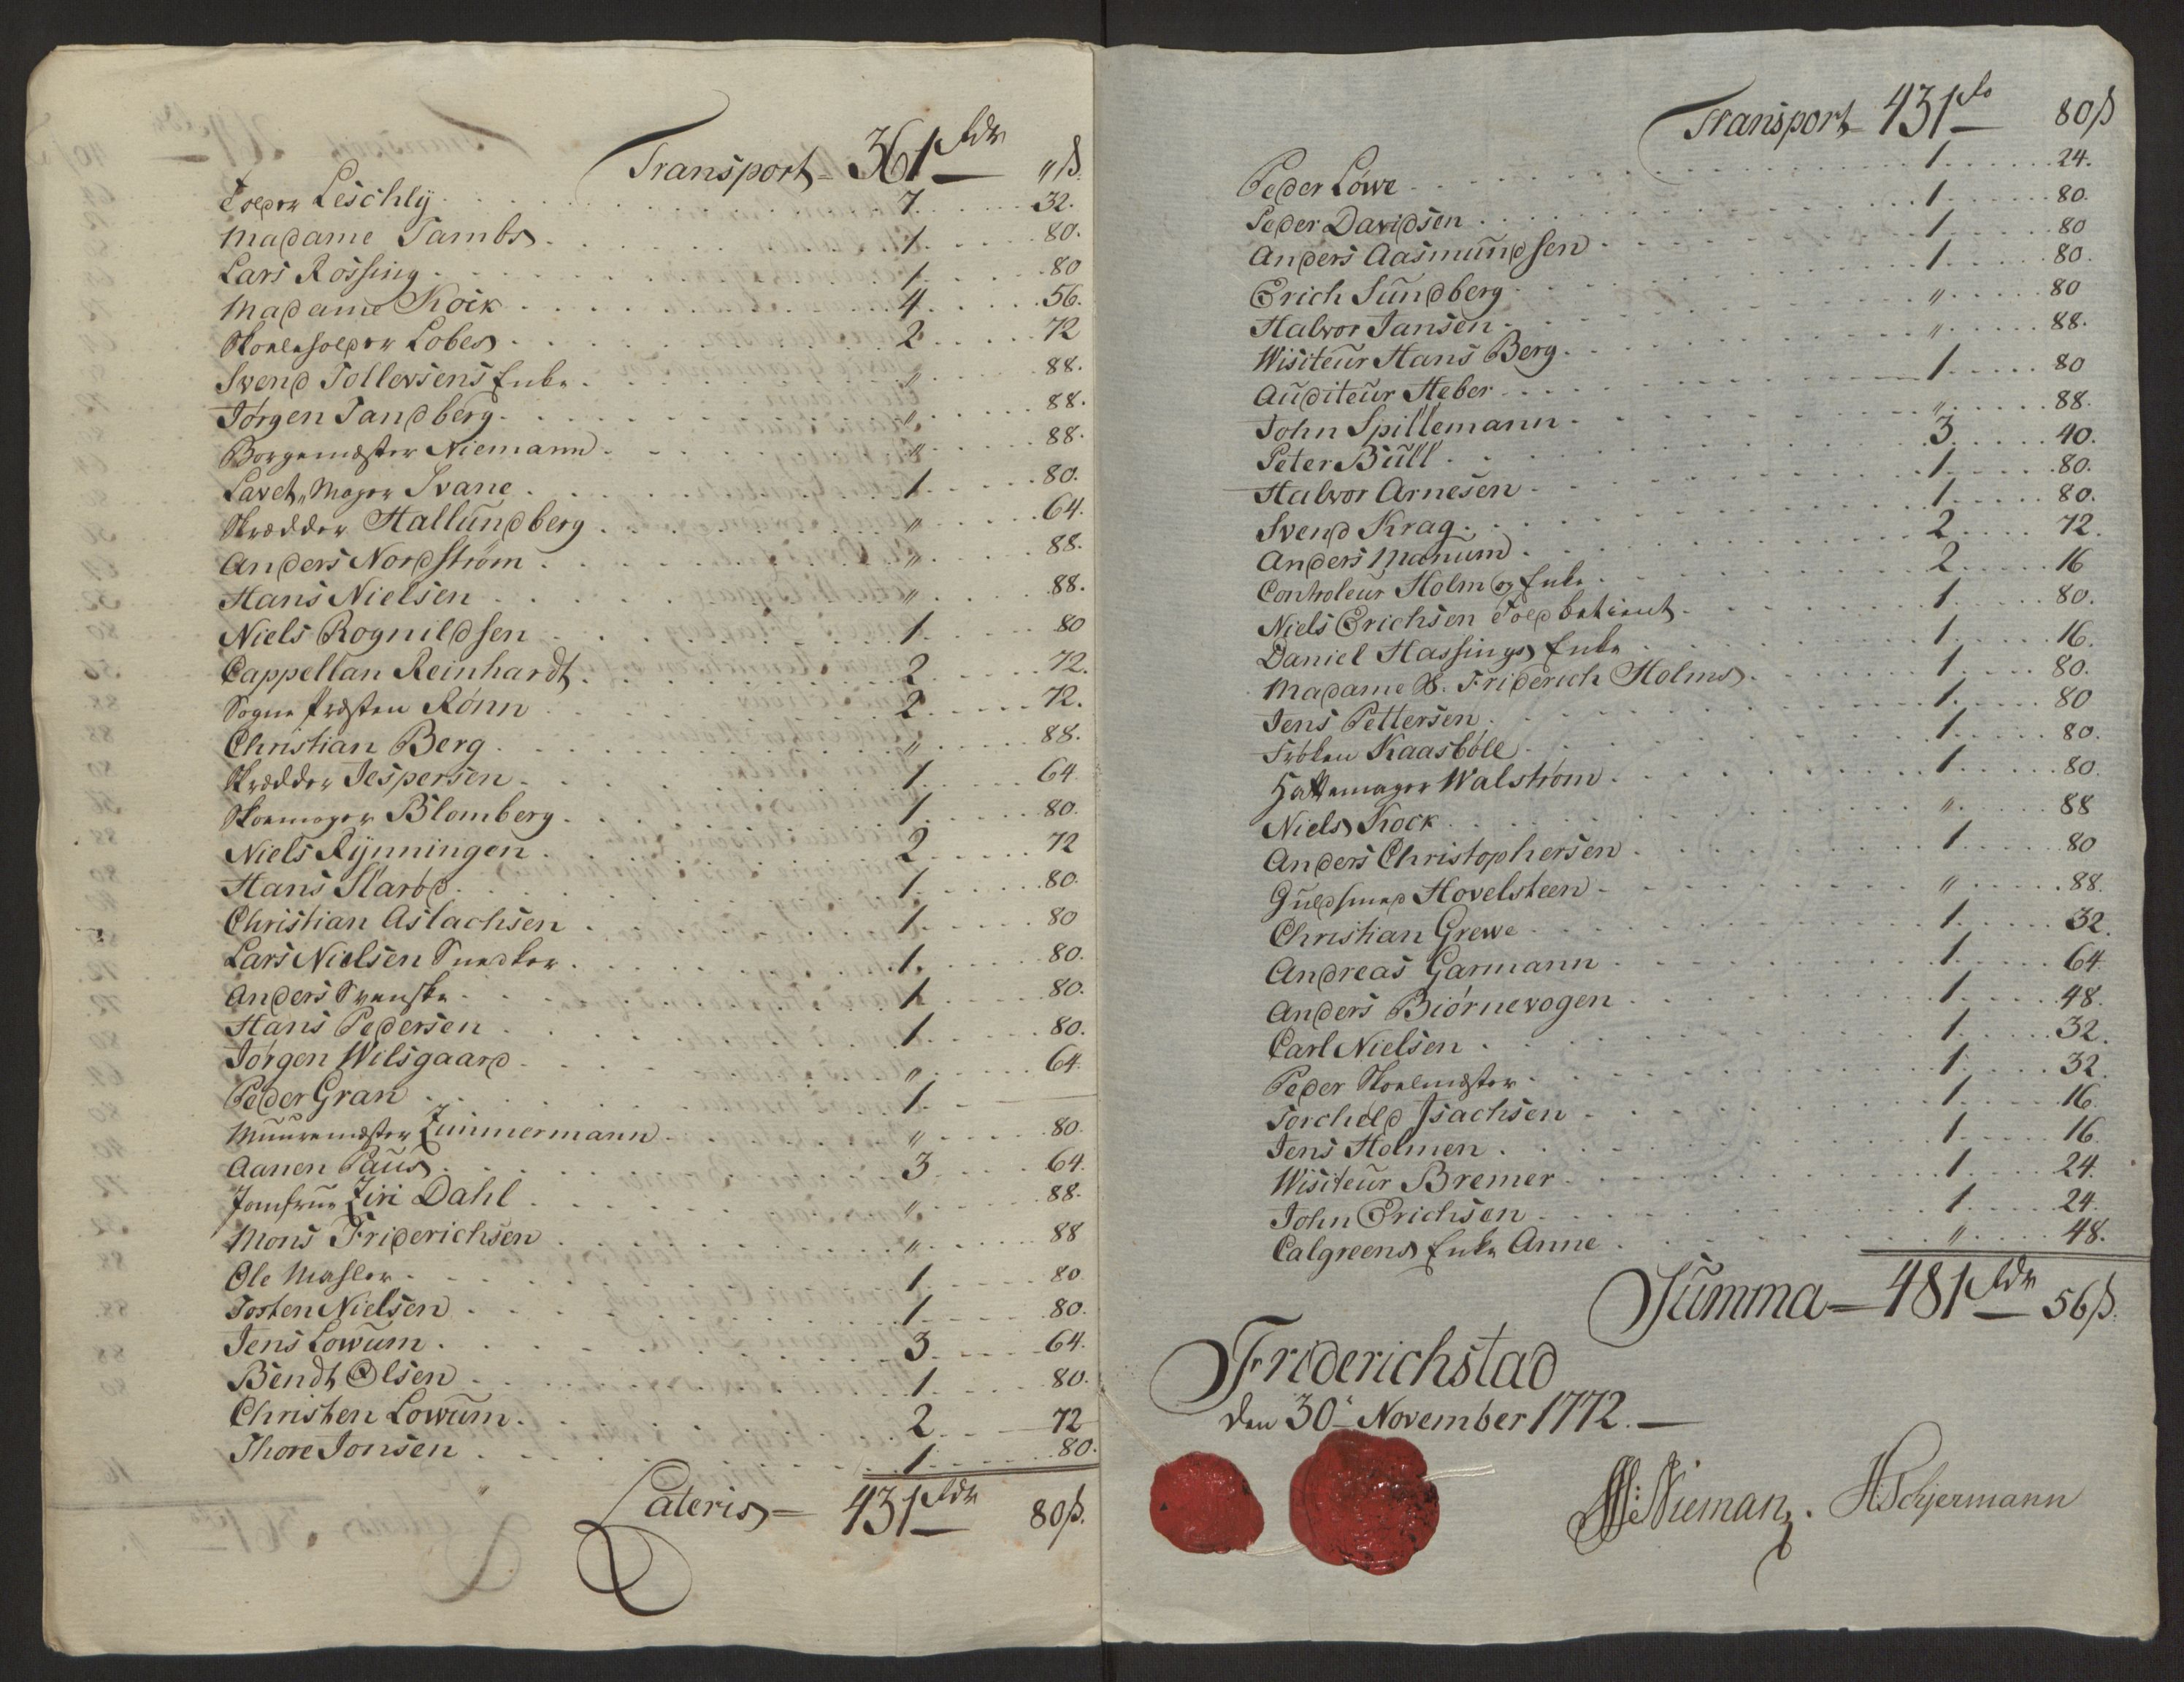 Transport 361 rdr " ß.
Tolder Leschly 7 32.
Madame Tambs 1 80.
Lars Rossing 1 80
Madame Koik 4 56.
Skoeleholder Lobes 2 72
Svend Tollevsens Enke " 88.
Jørgen Tandberg " 88.
Borgemester Niemann " 88.
Lavet, Mager Svane 1 80.
Skrædder Hallundberg " 64.
Anders Nordstrøm " 88.
Hans Nielsen " 88.
Niels Rognildsen 1 80
Cappellan Reinhardt 2 72.
Sogne Præsten Rønn 2 72.
Christian Berg " 88.
Skrædder Jespersen 1 64
Skoemager Blomberg 1 80.
Niels Rynningen 2 72
Hans Slarød 1 80.
Christian Aslachsen 1 80
Lars Nielsen Snedker 1. 80.
Anders Svenske 1 80.
Hans Pedersen 1 80.
Jørgen Wilsgaard " 64.
Peder Gran 1. —
Muuremester Zimmermann " 80.
Aanen Paus 3 64.
Jomfrue Ziri Dahl " 88.
Mons Friderichsen " 88
Ole Masler 1 80
Josten Nielsen 1 80.
Jens Lowum 3 64.
Bendt Olsen 1 80.
Christen Lowum 2 72
Thore Jonsen 1 80.
Lateris 431 rdr 80 ß.
Transport 431 rd 80 ß
Peder Löwe 1 24.
Peder Davidsen 1 80.
Anders Aasmundsen 1 80
Erich Sundberg 1 80.
Halvor Jansen " 80
Wisiteur Hans Berg " 88.
Auditeur Heber 1 80
John Spillemann " 88.
Peter Bull 3 40.
Halvor Arnesen 1 80.
Svend Krag 1 80.
Anders Manum 2 72.
Controleur Holm og Enke 2 16
Niels Erichsen Told betient 1 80.
Daniel Hassings Enke 1 16.
Madame S. Friderich Holms 1 80.
Jens Pettersen 1 80
Frøken Kaasbøll 1 80.
Hattemager Walstrøm 1 80.
Niels Kock " 88
Anders Christophersen 1 80
Guldsmed Hovelsteen " 88.
Christian Grewe 1 32.
Andreas Garmann 1 64
Anders Biørnevogen 1 48.
Carl Nielsen 1 32.
Peder Skoelmester 1 32
Torcheld Isachsen 1 16
Jens Holmen 1 16.
Wisiteur Bremer 1 24.
John Erichsen 1 24.
Calgreens Enke Anne " 48.
Summa 481 rdr 56 ß.
Friderichstad
den 30te November 1772.
Nieman. H: Schjermann